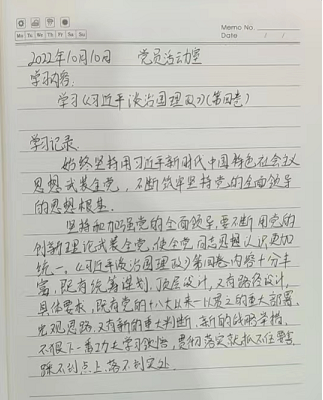 Memo No.
Mo Tu We Th Fr Sa Su
Date / /
2022年10月10日 党员活动室
学习内容:
学习《习近平谈治国理政》(第四卷)
学习记录
始终坚持用习近平新时代中国特色社会主义
思想武装全党,不断筑牢坚持党的全面领导
的思想根基.
坚持和加强党的全面领导,要不断用党的
创新理论武装全党,使全党同志思想认识更加
统一。《习近平谈治国理政》第四卷内容十分丰
富,既有统筹谋划,顶层设计,又有路径设计,
具体要求,既有党的十八大以来一以贯之的重大部署,
宏观思路,又有新的重大判断,新的战略举措.
不狠下一番功夫学习领悟,贯彻落实就抓不住要害
踩不到点上,落不到实处.